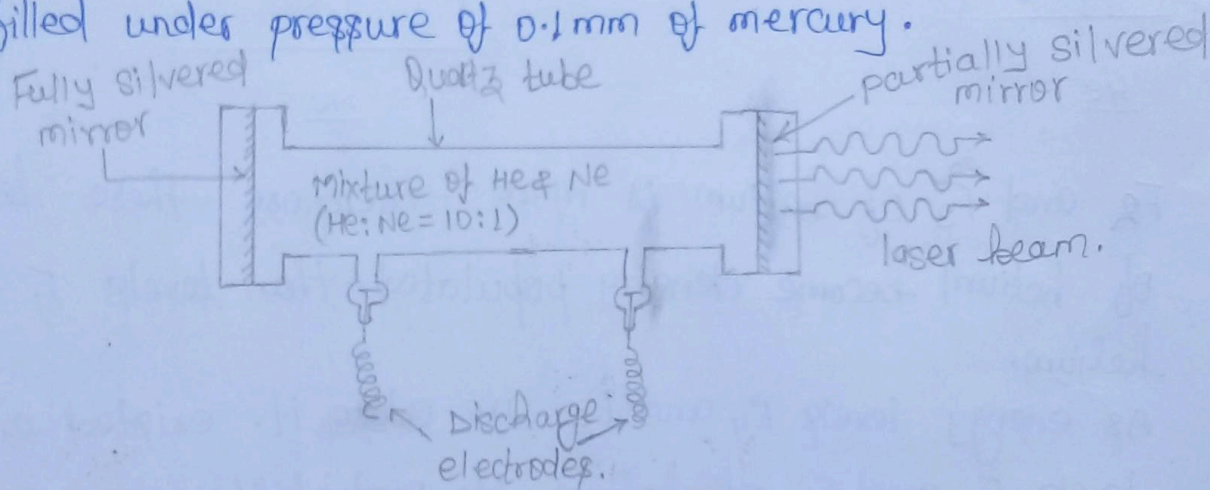 filled under pressure of 0.1mm of mercury.
Fully silvered
mirror
Quartz tube
partially silvered
mirror
Mixture of He & Ne
(He: Ne = 10:1)
laser beam.
Discharge
electrodes.